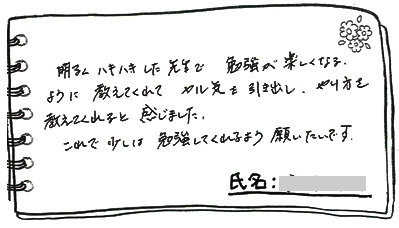 明るくハキハキした先生で 勉強が楽しくなる
ように教えてくれて ヤル気を引き出し、やり方を
教えてくれると感じました。
これで少しは勉強してくれるよう願いたいです。
氏名: